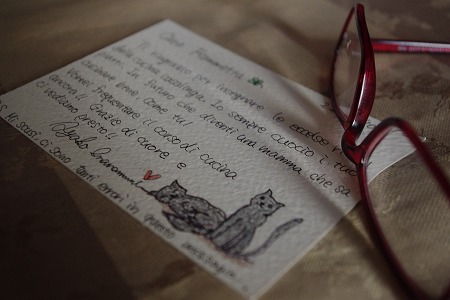 Cara Fiammetta
Ti ringrazio per insegnare le
della cucina casalinga. Io sempre cuocio i tuoi
piatti. In futuro che diventi una mamma che sa
cucinare bene come tu!
Vorrei frequentare il corso di cucina
ancora!! Grazie di cuore e
ci vediamo presto!
Mi scusi ci sono
tanti errori in questo messaggio